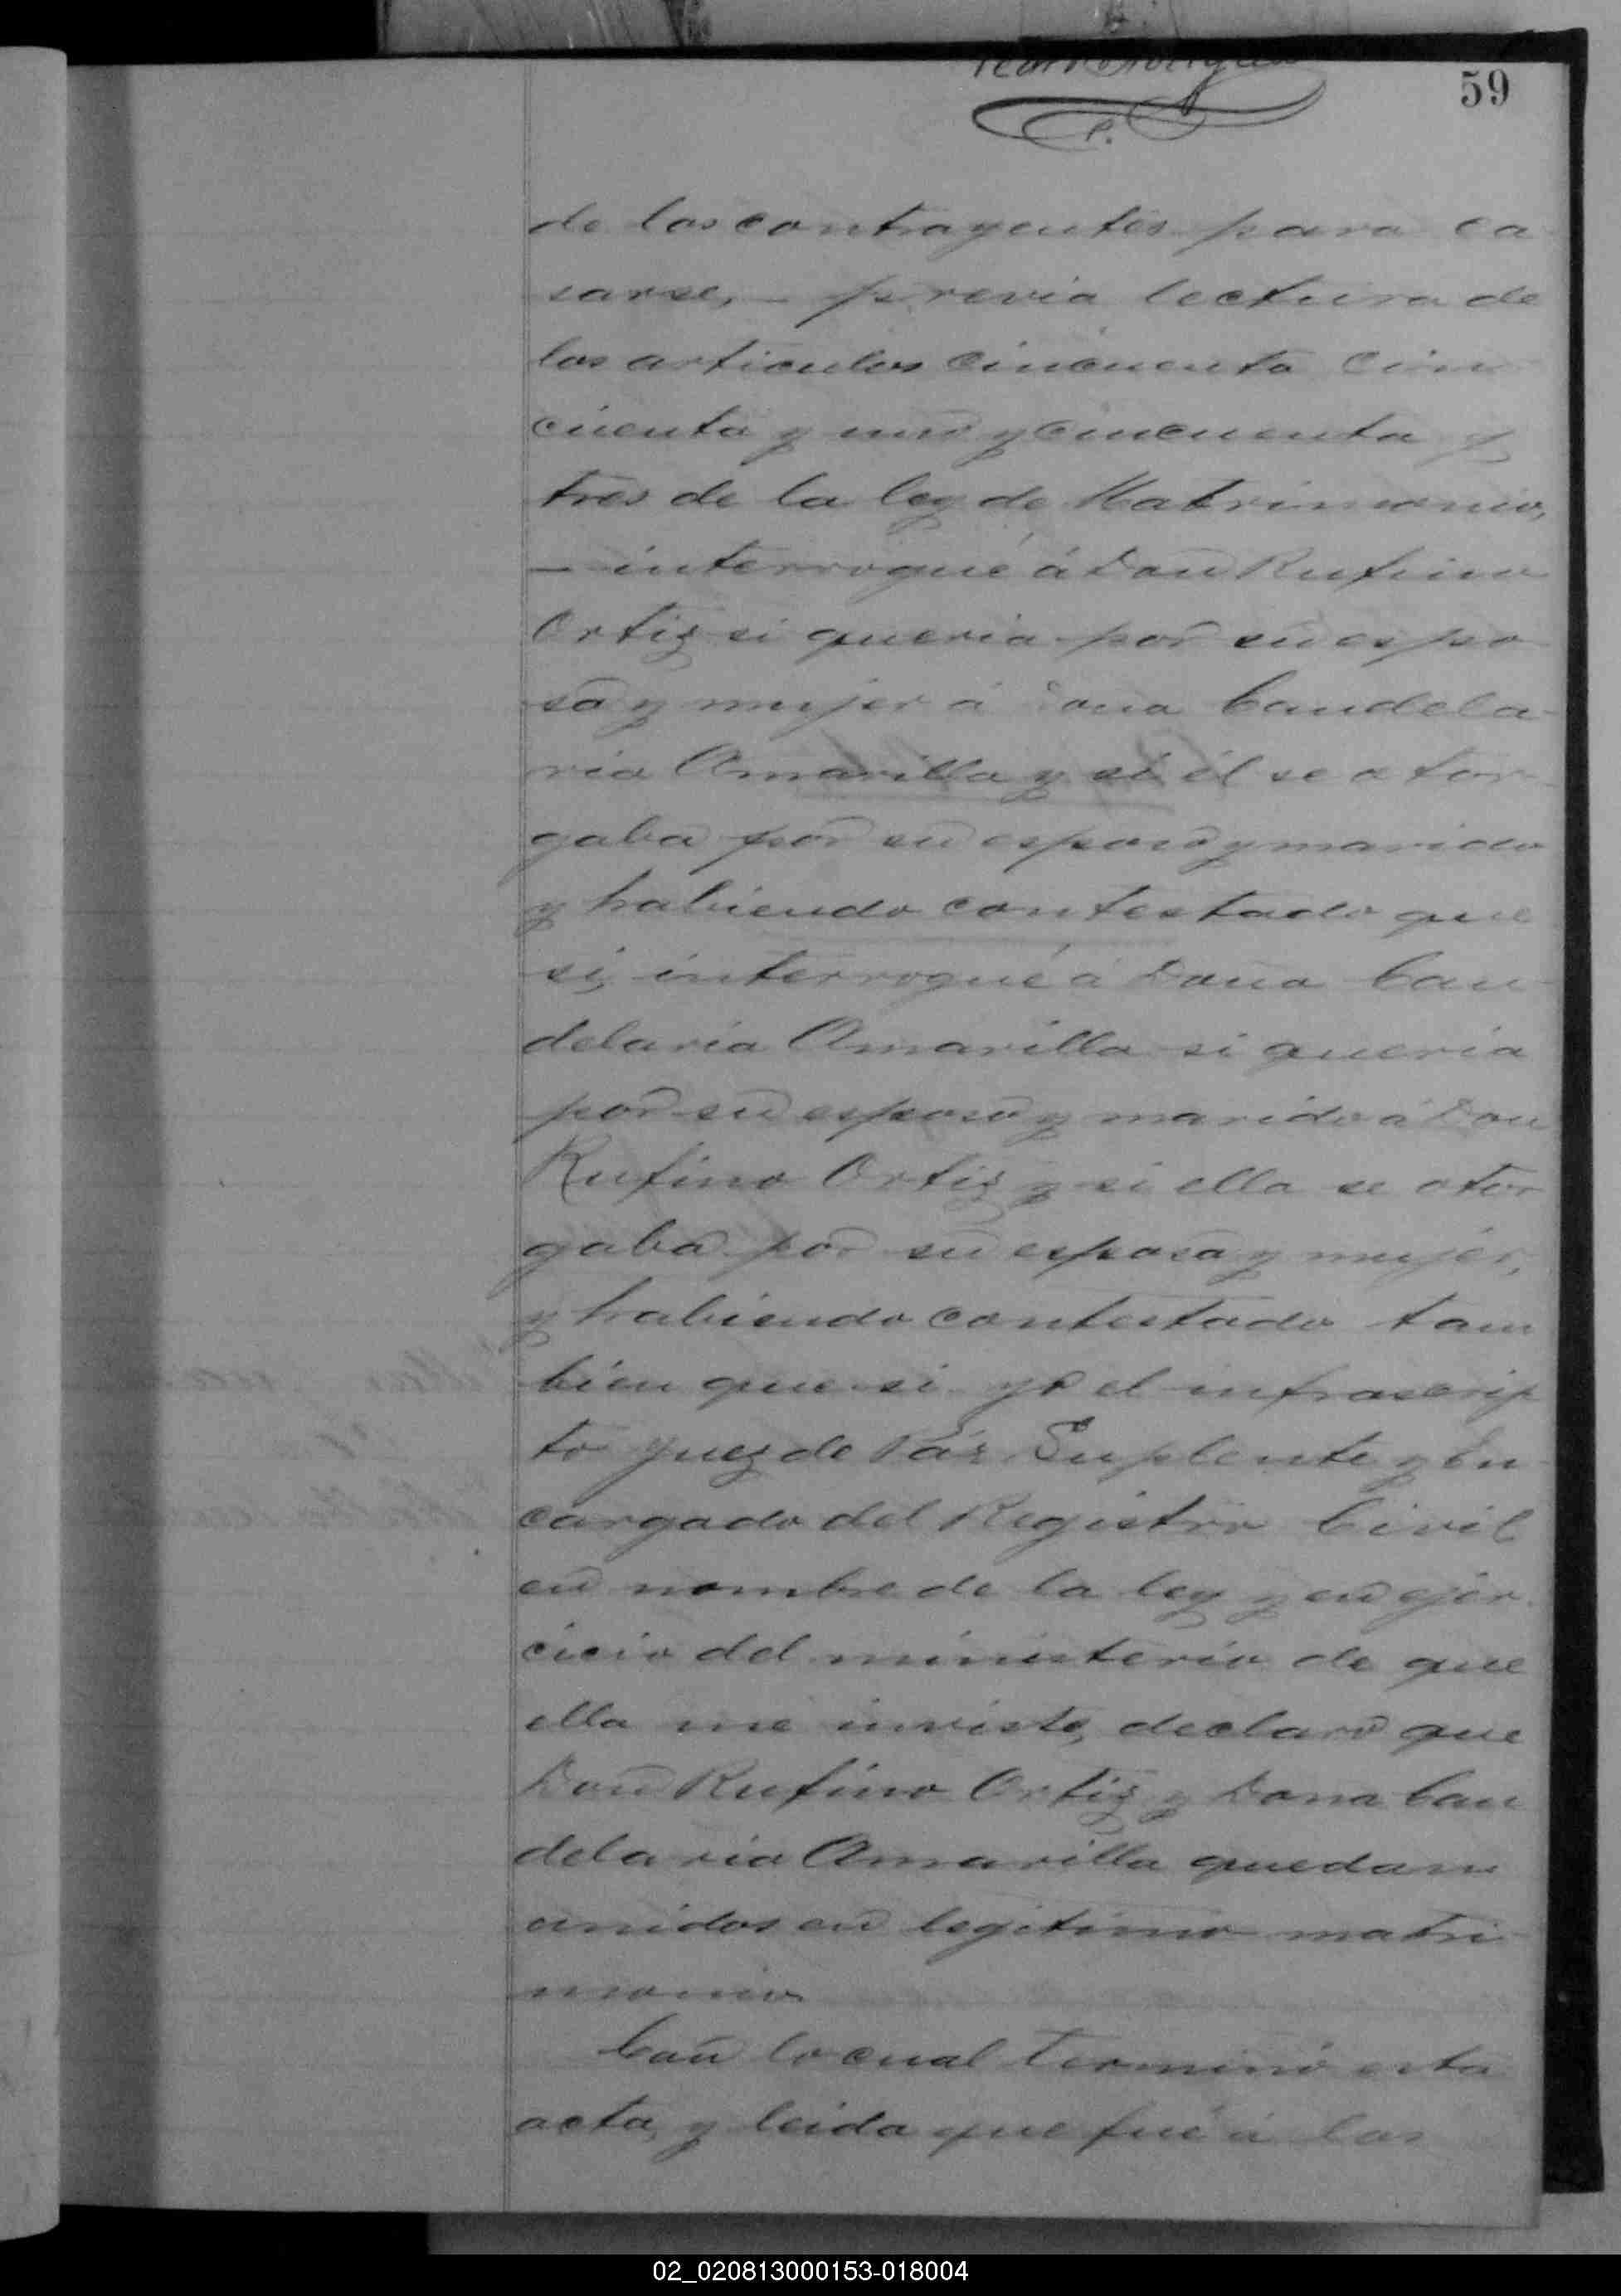 59
de los contrayentes para ca
sarse, - previa lectura de
los articulos cincuenta cin
cuenta y uno y cincuenta y
tres de la ley de Matrimonio,
- interrogué á Don Rufino
Ortiz si queria por su espo
sa y mujer á Dona Candela
ria Amarilla y si él se otor
gaba por su esposo y marido
y habiendo contestado que
si, interrogué á Dona Can
delaria Amarilla si queria
por su esposo y marido á Don
Rufino Ortiz y si ella se otor
gaba por su esposa y mujer,
y habiendo contestado tam
bien que si yo el infrascrip
to Juez de Páz Suplente y En
cargado del Registro Civil
en nombre de la ley y en ejer
cicio del ministerio de que
ella me inviste, declaro que
Don Rufino Ortiz y Dona Can
delaria Amarilla quedan
unidos en legitimo matri
monio
Con lo cual terminó esta
acta, y leida que fué á los
02_020813000153-018004